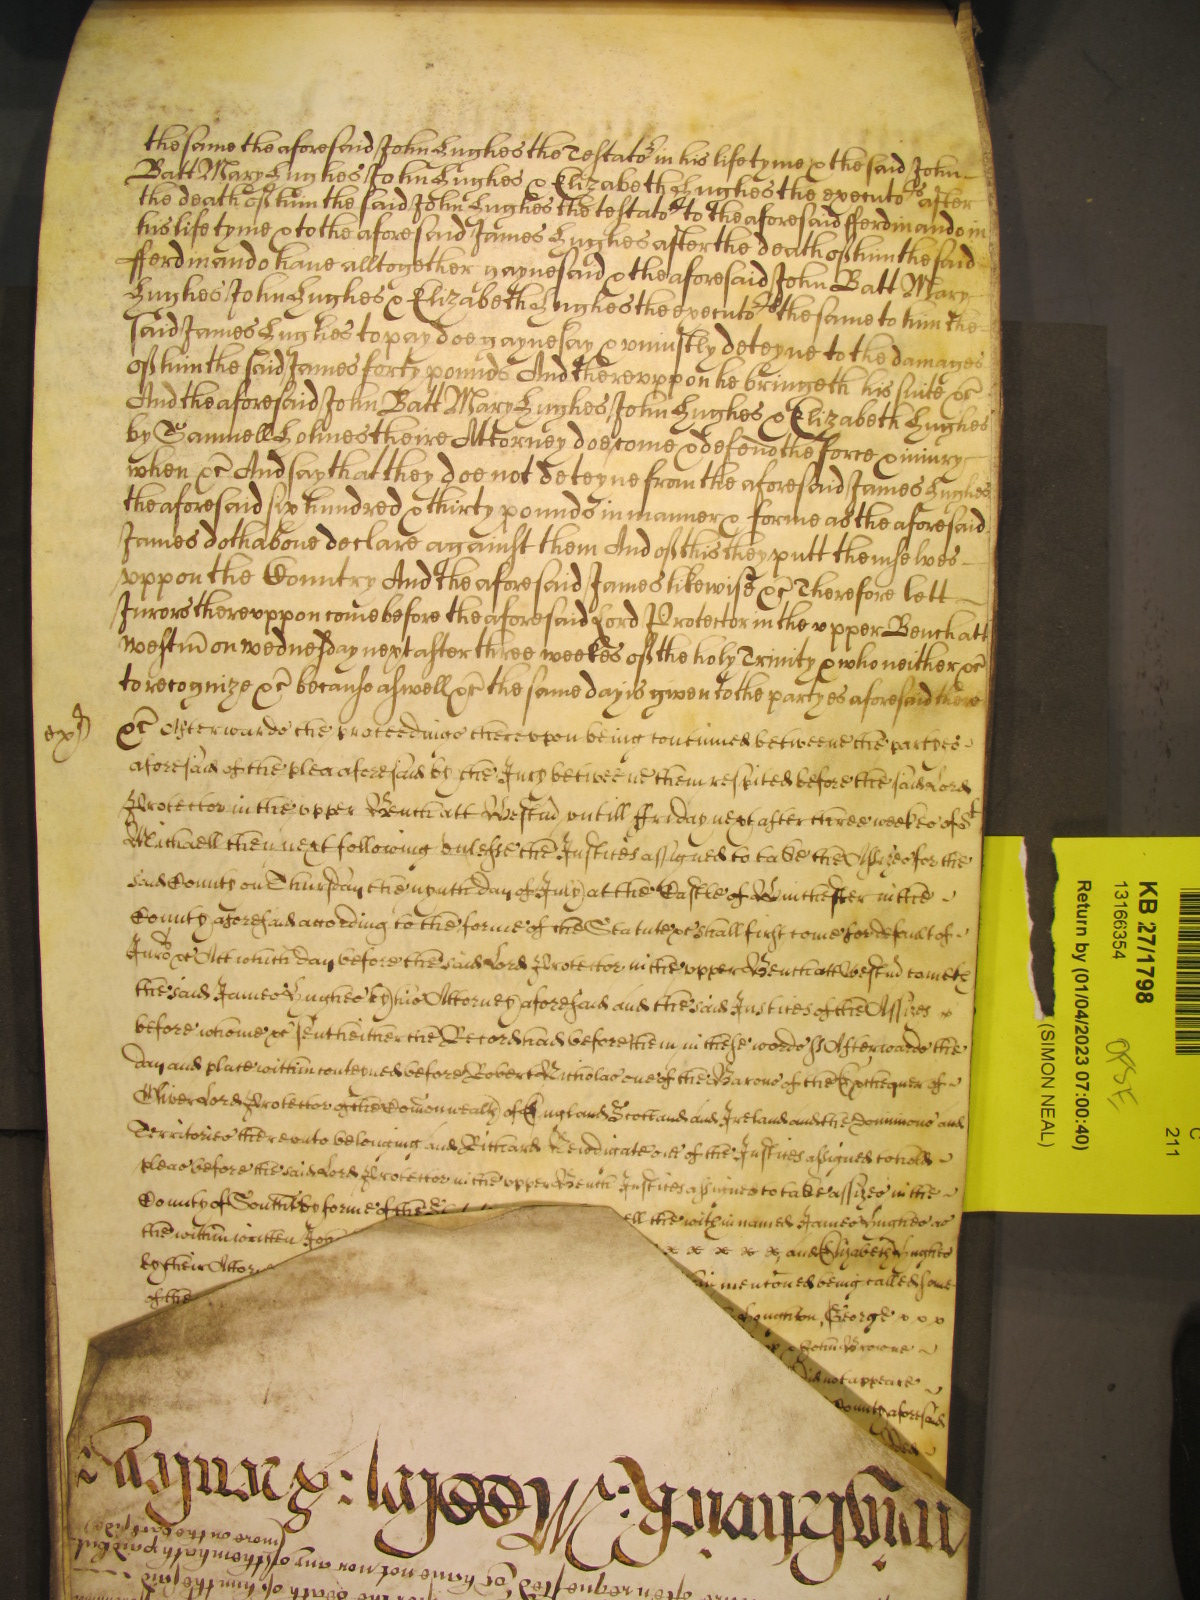 the same the aforesaid John Hughes the Testator in his life tyme & the said John
Batt Mary Hughes John Hughes & Elizabeth Hughes the executors after
the death of him the said John Hughes the testator to the aforesaid Fferdinando in
his life tyme & to the aforesaid James Hughes after the death of him the said
Fferdinando haue alltogether gaynesaid & the aforesaid John Batt Mary
Hughes John Hughes & Elizabeth Hughes the executors the same to him the
said James Hughes to pay doe gaynesay & uniustly deteyne to the damages
of him the said James forty pounds And therevppon he bringeth his suite &c
And the aforesaid John Batt Mary Hughes John Hughes & Elizabeth Hughes
by Samuell Holmes theire Attorney doe come & defend the force & iniury
when &c And say that they doe not deteyne from the aforesaid James Hughes
the aforesaid six hundred & thirty pounds in manner & forme as the aforesaid
James doth aboue declare against them And of this they putt themselves
vppon the Country And the aforesaid James likewise &c Therefore lett
Jurors therevppon come before the aforesaid Lord Protector in the vpper Bench att
Westm on wednesday next after three weekes of the holy Trinity & who neither &c
to recognize &c because aswell &c the same day is given to the partyes aforesaid there
&c Afterwards the proceedings therevpon being continued betweene the partyes
aforesaid of the plea aforesaid by the Jury betweene them respited before the said Lord
Protector in the vpper Bench att Westm vntill ffriday next after three weekes of St
Michaell then next following vnlesse the Justices assigned to take the Assizes for the
said County on Thursday the nynth day of July at the Castle of Winchester in the
County aforesaid according to the forme of the Statute &c shall first come for default of
Jurors &c Att which day before the said Lord Protector in the vpper Bench att Westm cometh
the said James Hughes by his Attorney aforesaid and the said Justices of the Assizes
before whome &c sent hether the Record had before them in these words ss Afterwards the
day and place within conteyned before Robert Nicholas one of the Barons of the Exchequer of
Oliver Lord Protector of the Comonwealth of England Scotland and Ireland and the Dominions and
Territories therevnto belonging and Richard Newdigate one of the Justices assigned to hold
pleas before the said Lord Protector in the vpper Bench Justices assigned to take assizes in the
County of South by forme of the ell the within named James Hughes as
the within written and Elizabeth Hughes
by their Attor mencioned being called some
of the George
John Browne
did not appeare
County aforesaid
KB 27/1798
13166354
Return by (01/04/2023 07:00:40)
(SIMON NEAL)
C
211